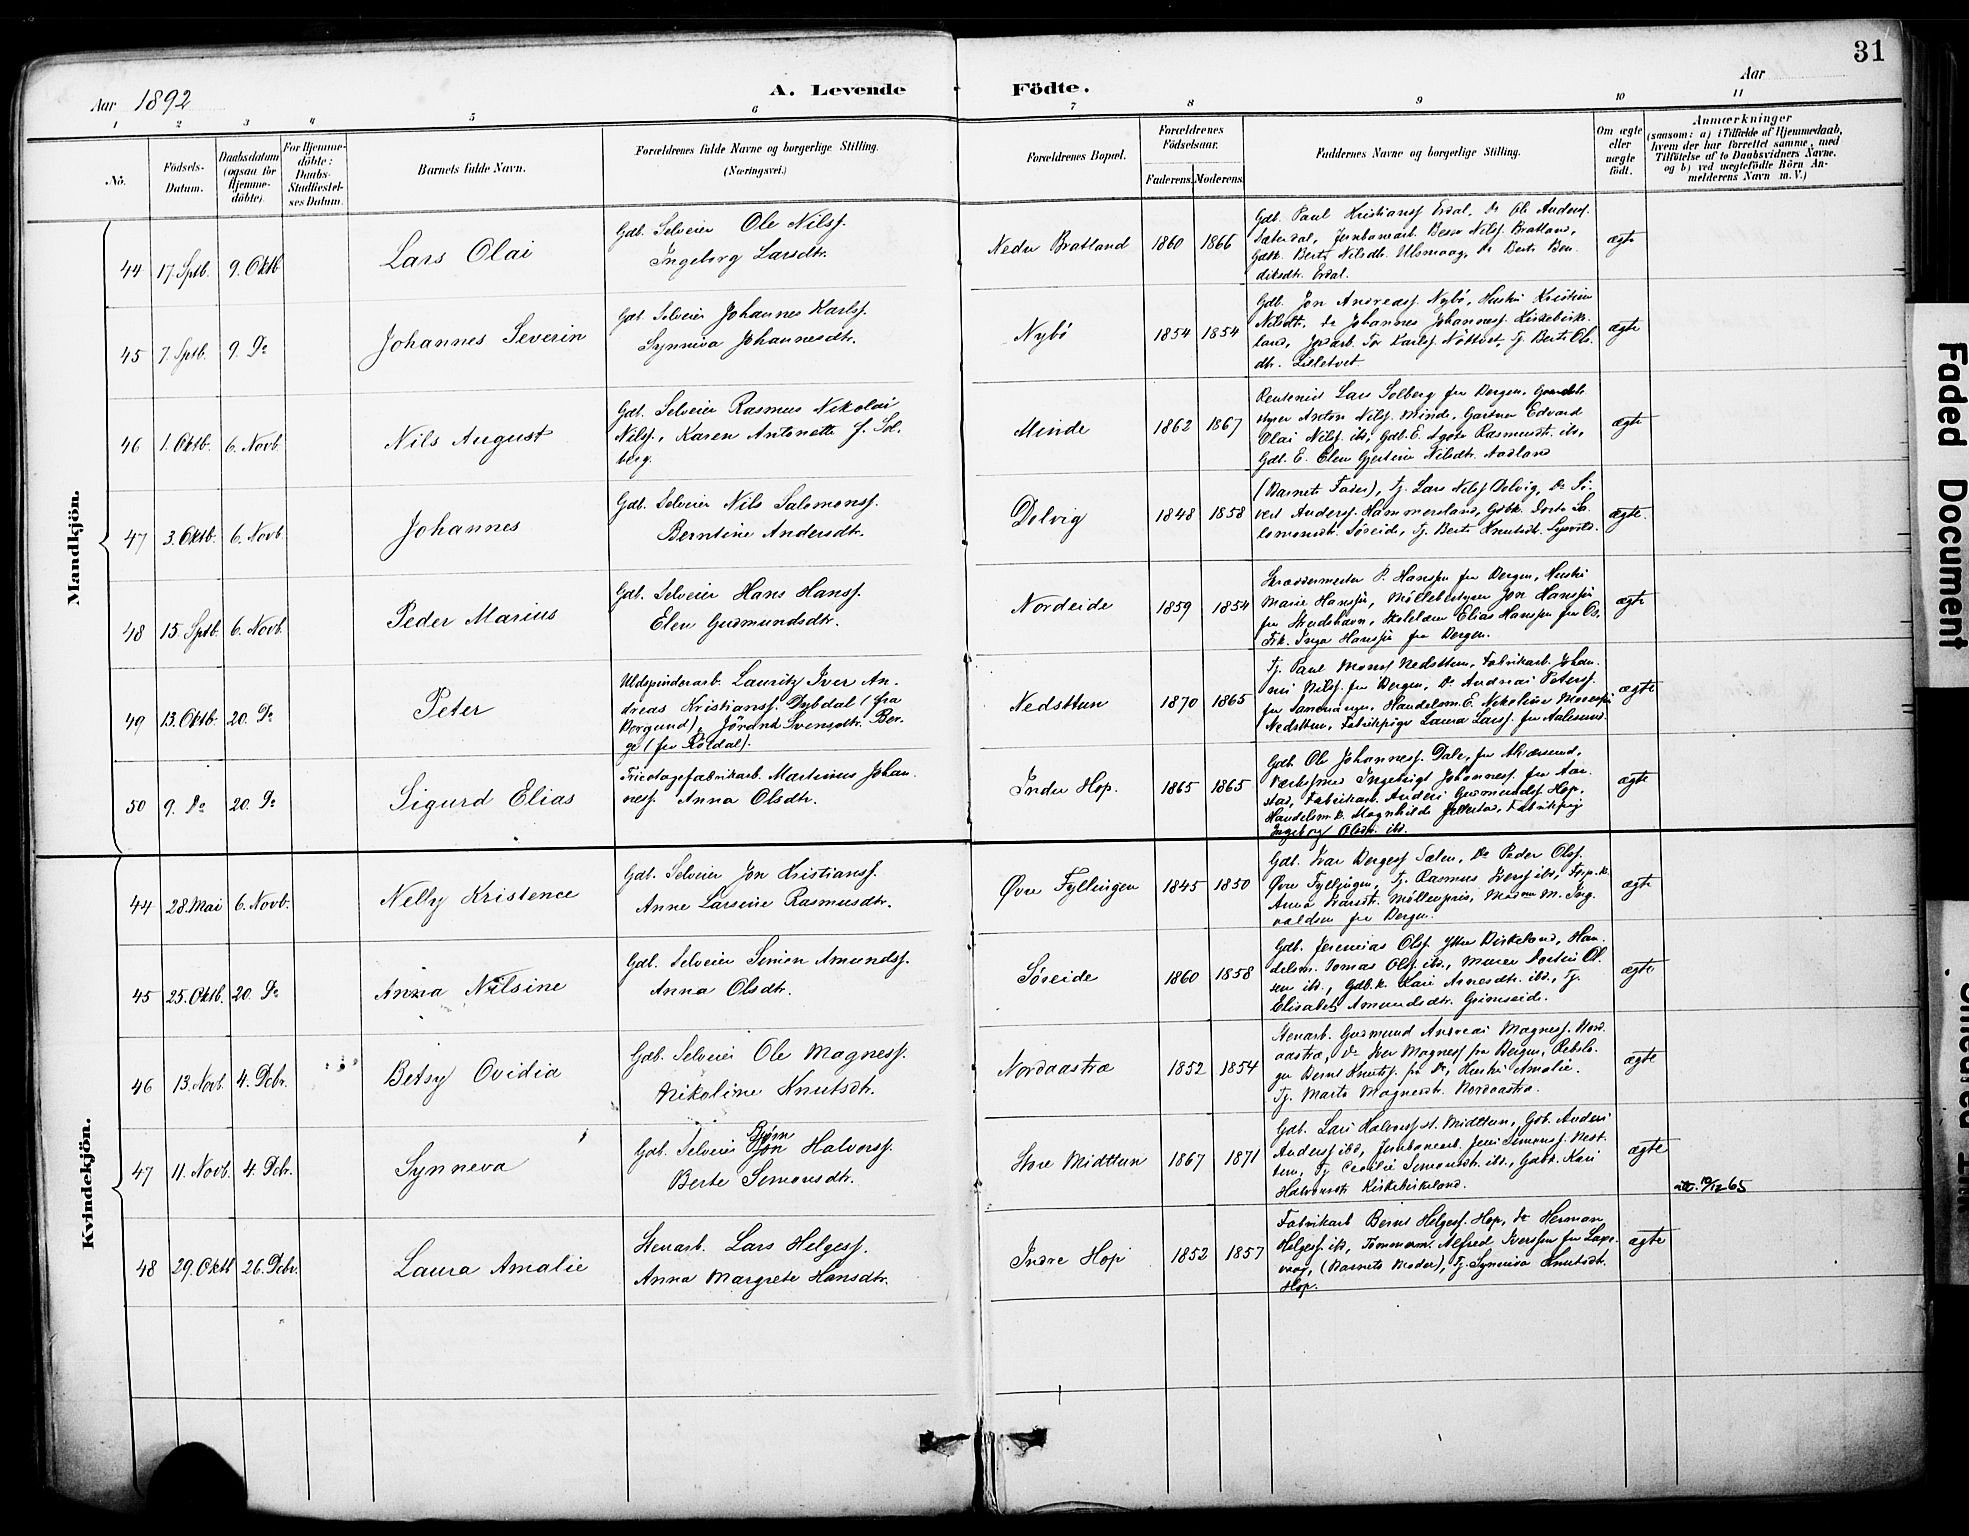 31
Aar 1892
A. Levende Födte.
Aar
1 2 3 4 5 6 7 8 9 10 11
No.
Födsels-Datum.
Daabsdatum (ogsaa for Hjemmedöbte).
For Hjemmedöbte: Daabs-Stadfæstelses Datum.
Barnets fulde Navn.
Forældrenes fulde Navne og borgerlige Stilling. (Næringsvei.)
Forældrenes Bopæl.
Forældrenes Födselsaar.
Faderens. Moderens.
Faddernes Navne og borgerlige Stilling.
Om ægte eller uægte födt.
Anmærkninger
(saasom: a) i Tilfælde af Hjemmedaab, hvem der har forrettet samme, med Tilföielse af to Daabsvidners Navne, og b) ved uægtefödte Börn Anmelderens Navn m. V.)
Mandkjön.
44 17. Sptb. 9. Oktb Lars Olai
Gdb. Selveier Ole Nilsf.
Ingeborg Larsdtr.
Nedre Bratland 1860 1866
Gdb. Paul Kristiansf Erdal, Do Ole Andersf.
Sæterdal, Jernbanearb. Nilsf. Bratland,
Gdbk. Berte Nilsdtr. Ulsmaag, Do Berte Ben-
diksdtr. Erdal.
ægte
45 7. Sptb. 9. Do Johannes Severin
Gdb. Selveier Johannes Karlsf.
Synneva Johannesdtr.
Nybö 1854 1854
Gdb. Jon Andreasf. Nybö, Hustru Kristine
Nilsdt, Do Johannes Johannesf. Kirkebirke-
land, Jordarb. Tor Karlsf. Nöttvet, Tj. Berte Ols-
dtr. Lilletvet.
ægte
46 1. Oktb. 6. Novb. Nils August
Gdb. Selveier Rasmus Nikolai
Nilsf., Karen Antonette f. Sol-
berg.
Minde 1862 1867
Rentenist Lars Solberg fra Bergen,
Anton Nilsf. Minde, Gartner Edvard
Olai Nilsf. ibd, Gdb. E. Agote Rasmusdt. ibd,
Gdb. E. Elen Gjertine Nilsdtr. Aadland
ægte
47 3. Oktb. 6. Novb. Johannes
Gdb. Selveier Nils Salomonsf.
Berntine Andersdtr.
Dolvig 1848 1858
(Barnets Fader), Tj. Lars Nilsf Dolvig, Do Si-
vert Andersf. Hammersland, Gdbk. Dorte Sa-
lomonsdt. Söreide, Tj. Berte Knutsdt.
ægte.
48 15. Sptb. 6. Novb. Peder Marius
Gdb. Selveier Hans Hansf.
Elen Gudmundsdtr.
Nordeide 1859 1854
Skræddermester P. Hansen fra Bergen, Hustru
Marie Hansen, Möllebestyrer Jon Hansen
fra Skudehavn, Skolelærer Elias Hansen fra Os,
Frk. Inga Hansen fra Bergen.
ægte
49 13. Oktb. 20. Do Peter
Uldspinderarb. Lauritz Iver An-
dreas Kristiansf. Dybdal (fra
Borgund), Jörand Svensdtr. Ber-
ge (fra Röldal).
Nedsttun 1870 1865
Tj. Paul Monsf Nedsttun, Fabrikarb. Johan-
nes Nilsf. fra Bergen, Do Andreas Petersf.
fra Samnanger, Handelsm. E. Nikoline Monsen
Nedsttun, Fabrikpige Laura Larsf. fra Aalesund.
ægte
50 9. Do 20. Do Sigurd Elias
Tricotagefabrikarb. Martinus Johan-
nesf. Anna Olsdtr.
Indre Hop. 1865 1865
Gdb. Ole Johannesf. Dale, fra
Ingebrigt Johannesf. fra Aar-
stad, Fabrikarb. Anders Gudmundsf Hop,
Handelsm. k. Magnhilde Jellestad, Fabrikpig
Ingeborg Olsdtr. ibd.
ægte
Kvindekjön.
44 28. Mai 6. Novb. Nelly Kristence
Gdb. Selveier Jon Kristiansf.
Anne Larsine Rasmusdtr.
Øvre Fyllingen 1845 1850
Gdb. Ivar Bergesf Sælen, Do Peder Olsf.
Øvre Fyllingen, Tj. Rasmus Iversf ibd,
Anna Möllenpris, Madam M. Ing-
valdsen fra Bergen.
ægte
45 25. Oktb. 20. Do Anna Nilsine
Gdb. Selveier Simon Amundsf.
Anna Olsdtr.
Söreide 1860 1858
Gdb. Jeremias Olsf. Ytre Birkeland, Han-
delsm. Tomas Olsf. ibd., Ol-
sen ibd., Gdb.k. Kari Arnesdtr. ibd., Tj.
Elisabet Amundsdtr. Grimseid.
ægte
46 13. Novb. 4. Dcbr. Betsy Ovidia
Gdb. Selveier Ole Magnesf.
Nikoline Knutsdtr.
Nordaastræ 1852 1854
Stenarb. Gudmund Andreas Magnesf. Nord-
aastræ, Do Iver Magnesf fra Bergen, Rebsla-
ger Bernt Knutsf. fra Do, Hustru Amalie.
Tj. Marta Magnesdt. Nordaastræ.
ægte
47 11. Novb. 4. Dcbr. Synneva
Björn
Gdb. Selveier Jon Halvorsf.
Berte Simonsdtr.
Store Midttun 1867 1871
Gdb. Lars Halvorsf. st. Midttun, Gdb. Anders
Andersf ibd, Jernbanearb. Jens Simonsf. Nest-
tun, Tj. Cecilie Simonsdt. ibd., Gdbk. Kari
Halvorsdt. Kirkebirkeland.
ægte
att. 19/12 65
48 29. Oktb 26. Dcbr. Laura Amalie
Stenarb. Lars Helgesf.
Anna Margrete Hansdtr.
Indre Hop 1852 1857
Fabrikarb Bernt Helgesf. Hop, Do Herman
Helgesf. ibd, Tömmerm. Alfred Iversen fra Laxe-
vaag, (Barnets Moder), Tj. Synneva Knutsdtr.
Hop.
ægte
Faded Document